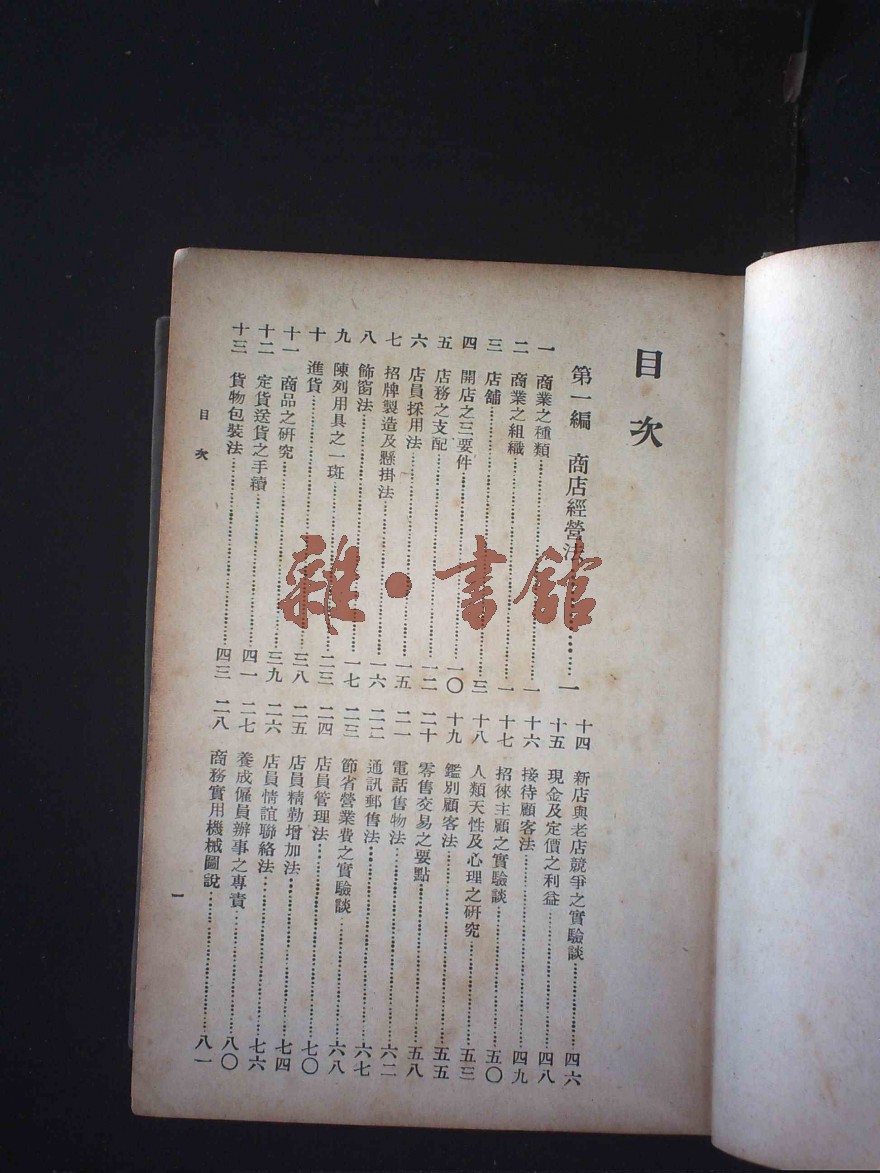 目次
第一編 商店經營法……一
一 商業之種類……一
二 商業之組織……一
三 店舖……三
四 開店之三要件……一〇
五 店務之支配……一二
六 店員採用法……一五
七 招牌製造及懸掛法……一六
八 飾窗法……一七
九 陳列用具之一斑……二三
十 進貨……三八
十一 商品之研究……三九
十二 定貨送貨之手續……四一
十三 貨物包裝法……四三
十四 新店與老店競爭之實驗談……四六
十五 現金及定價之利益……四八
十六 接待顧客法……四九
十七 招徠主顧之實驗談……五〇
十八 人類天性及心理之研究……五三
十九 鑑別顧客法……五五
二十 零售交易之要點……五八
二一 電話售物法……六二
二二 通訊郵售法……六七
二三 節省營業費之實驗談……六八
二四 店員管理法……七〇
二五 店員精勤增加法……七四
二六 店員情誼聯絡法……七六
二七 養成僱員辦事之專責……八〇
二八 商務實用機械圖說……八一
目次
一
雜·書館